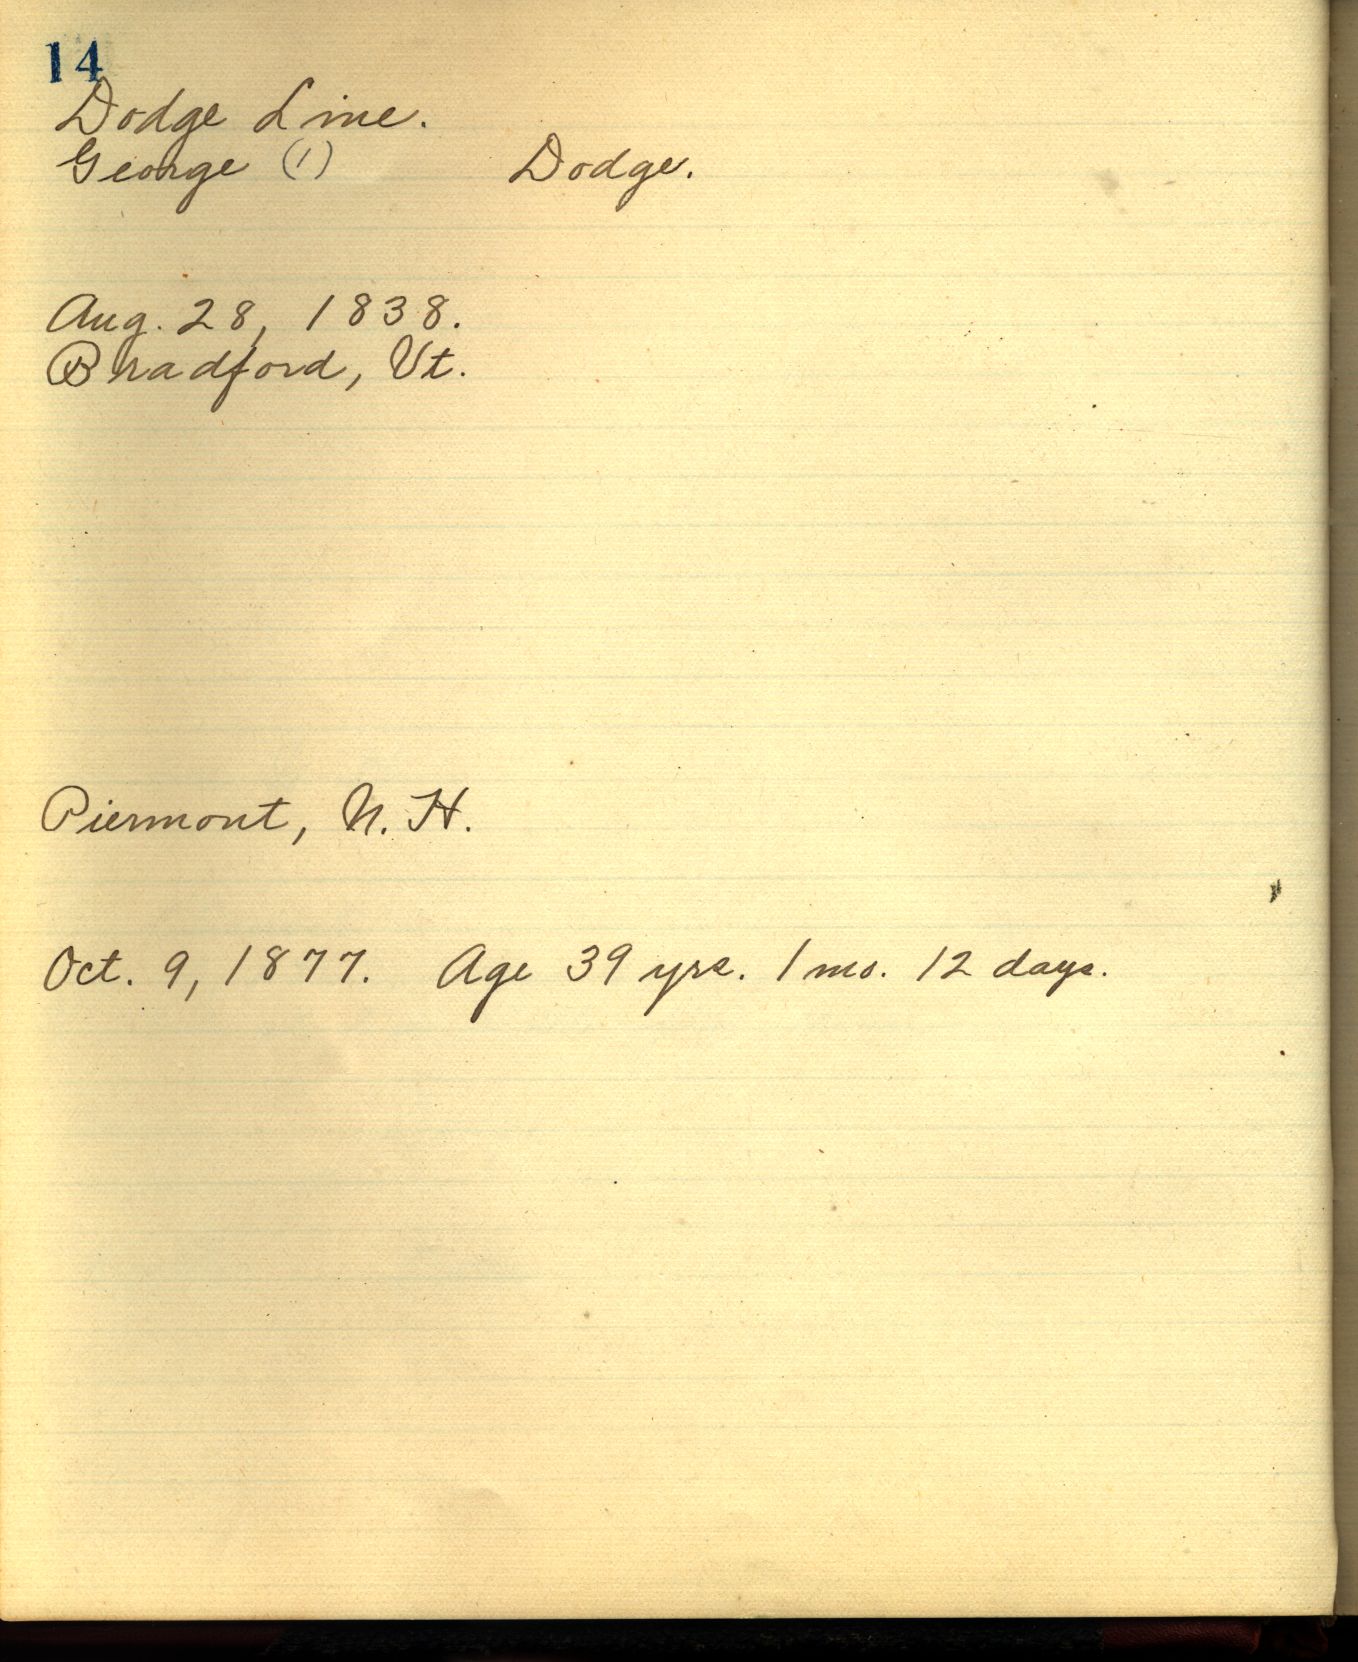 14
Dodge Line.
George (1) Dodge.
Aug. 28, 1838.
Bradford, Vt.
Piermont, N. H.
Oct. 9, 1877. Age 39 yrs. 1 mo. 12 days.